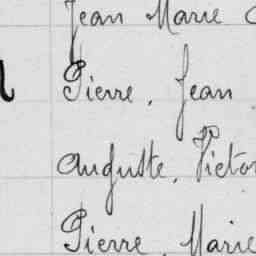 Jean Marie
Pierre, Jean
Auguste, Victor
Pierre, Marie